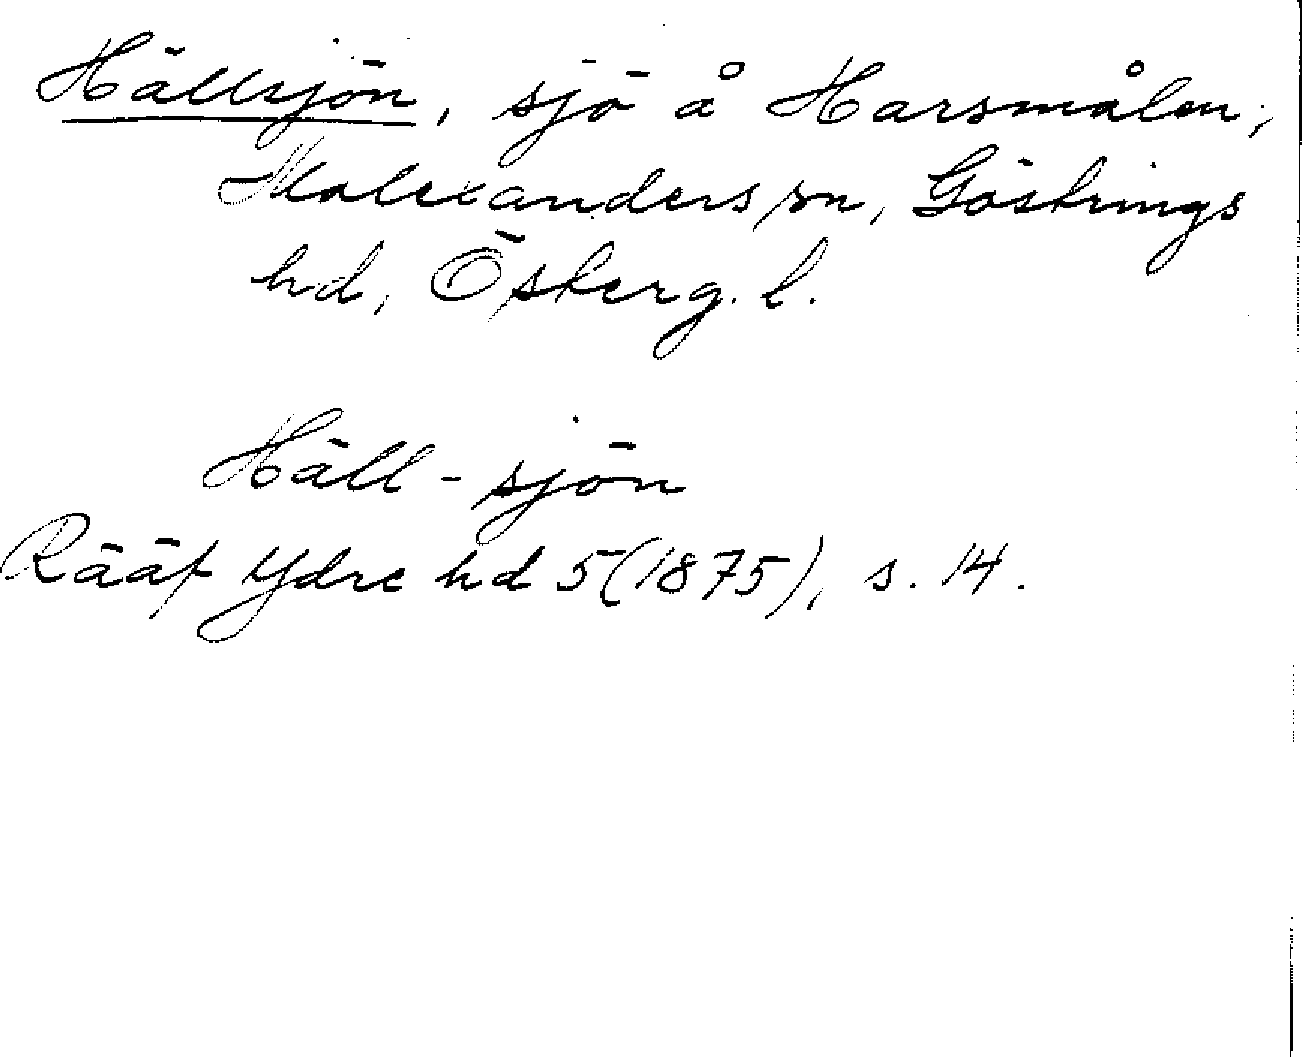 Hällsjön, sjö å Harsmålen,
Malexanders sn, Göstrings
hd, Österg. l.
Häll-sjön
Rääf Ydre hd 5 (1875), s. 14.